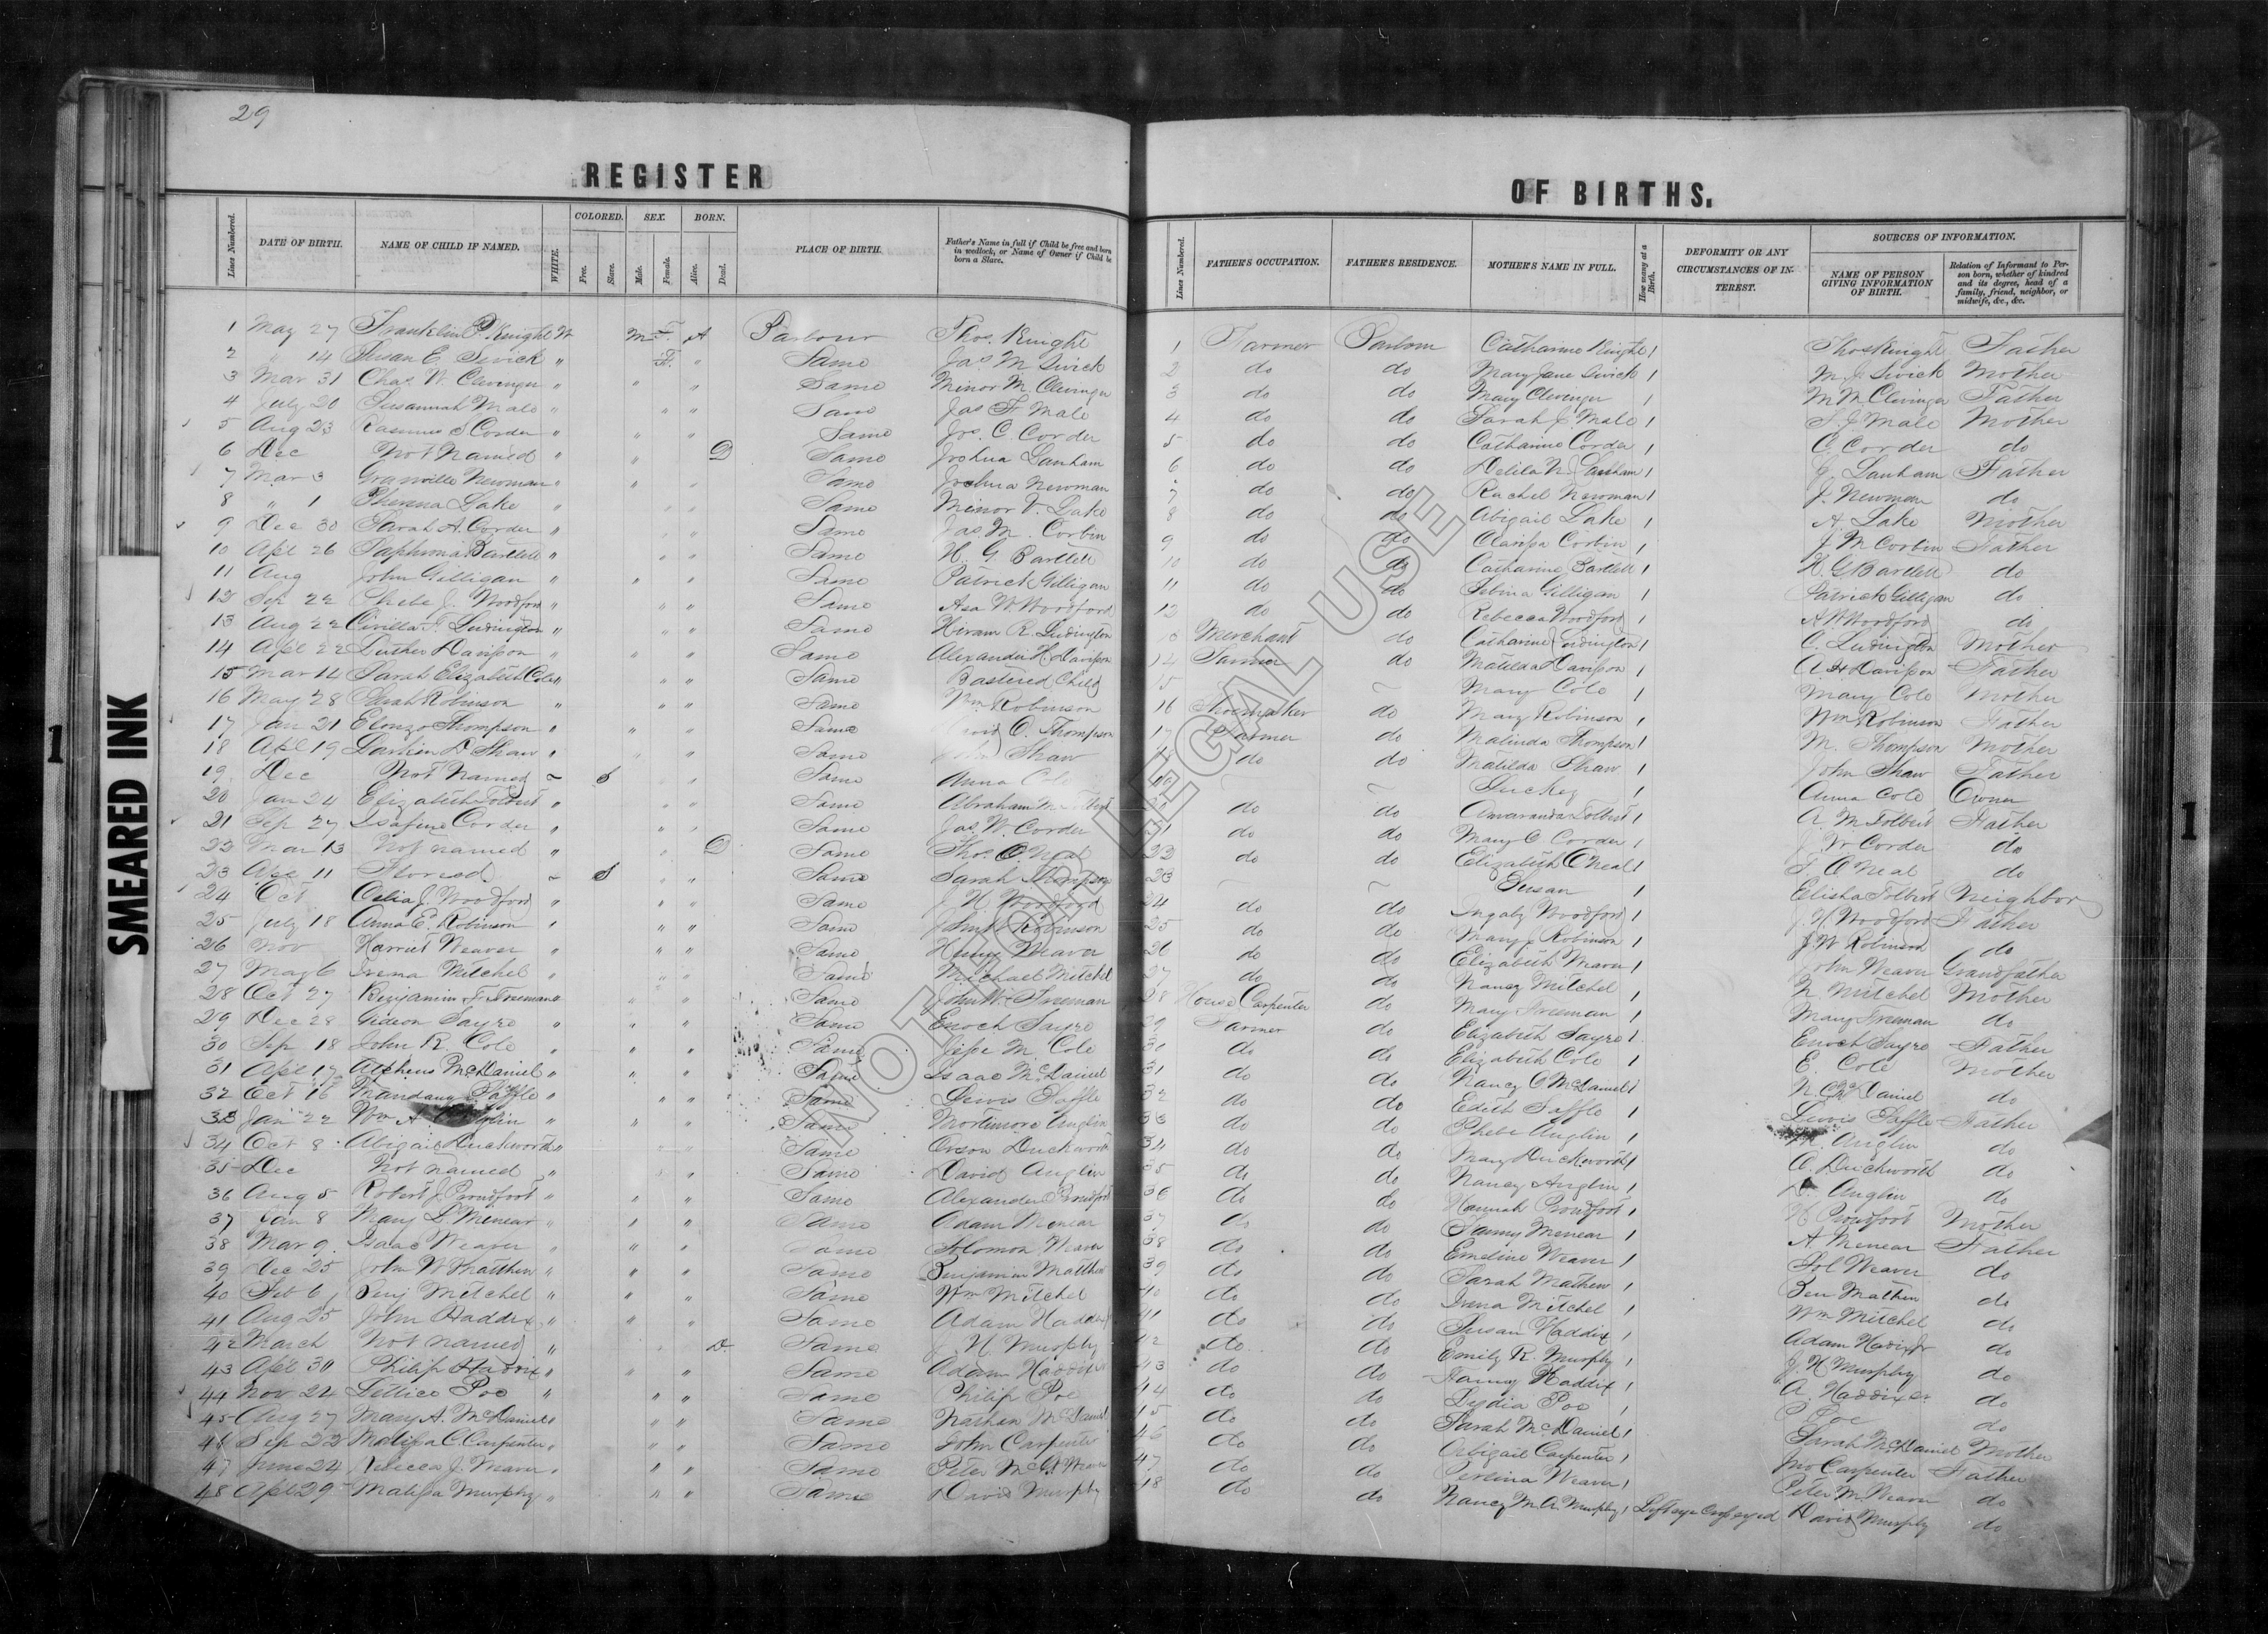 29
REGISTER OF BIRTHS.
Lines Numbered. DATE OF BIRTH. NAME OF CHILD IF NAMED. WHITE. COLORED. Free. Slave. SEX. Male. Female. BORN. Alive. Dead. PLACE OF BIRTH. Father's Name in full if Child be free and born in wedlock, or Name of Owner if Child be born a Slave. Lines Numbered. FATHER'S OCCUPATION. FATHER'S RESIDENCE. MOTHER'S NAME IN FULL. How many at a Birth. DEFORMITY OR ANY CIRCUMSTANCES OF INTEREST. SOURCES OF INFORMATION. NAME OF PERSON GIVING INFORMATION OF BIRTH. Relation of Informant to Person born, whether of kindred and its degree, head of a family, friend, neighbor, or midwife, &c., &c.
1 May 27 Franklin P. Knight W M A Barbour Thos. Knight 1 Farmer Barbour Catharine Knight 1 Thos Knight Father
2 " 14 Susan E. Swick " F. " Same Jas M Swick 2 do do Mary Jane Swick 1 M. J. Swick Mother
3 Mar 31 Chas. W. Clevenger " " " Same Minor M. Clevenger 3 do do Mary Clevenger 1 M M Clevenger Father
4 July 20 Susannah Male " " " Same Jas F. Male 4 do do Sarah J. Male 1 S. J. Male Mother
5 Aug 23 S Corder " " " Same Jos. C. Corder 5 do do Catharine Corder 1 C. Corder do
6 Dec Not Named " " D Same Joshua Lanham 6 do do Delila N. J. Lanham 1 J. Lanham Father
7 Mar 3 Granville Newman " " " Same Joshua Newman 7 do do Rachel Newman 1 J. Newman do
8 " 1 Lake " " " Same Minor V. Lake 8 do do Abigail Lake 1 A. Lake Mother
9 Dec 30 Sarah A. Corder " " " Same Jas. M. Corbin 9 do do Corbin 1 J. M Corbin Father
10 Apl 26 Bartlett " " " Same H. G. Bartlett 10 do do Catharine Bartlett 1 H. G Bartlett do
11 Aug John Gilligan " " " Same Patrick Gilligan 11 do do Gilligan 1 Patrick Gilligan do
12 Sep 22 Phebe J. Woodford " " " Same Asa W. Woodford 12 do do Rebecca Woodford 1 A W Woodford do
13 Aug 22 Civilla F. Ludington " " " Same Hiram R. Ludington Merchant do Catharine Ludington 1 C. Ludington Mother
14 Apl 22 Luther Davisson " " " Same Alexander H. Davisson 14 Farmer do Matilda Davisson 1 A H Davisson Father
15 Mar 14 Sarah Elizabeth Cole " " " Same Bastered Child 15 ~ ~ Mary Cole 1 Mary Cole Mother
16 May 28 Sarah Robinson " " " Same Wm Robinson 16 Shoemaker do Mary Robinson 1 Wm Robinson Father
17 Jan 21 Elonzo Thompson " " " Same C. Thompson 17 Farmer do Malinda Thompson 1 M. Thompson Mother
18 Apl 19 D Shaw " " " Same Shaw 18 do do Matilda Shaw 1 John Shaw Father
19 Dec Not Named ~ S " Same Anna Cole ~ ~ 1 Anna Cole Owner
20 Jan 24 Elizabeth Tolbert " " " Same Abraham M do do Amaranda Tolbert 1 A M Tolbert Father
21 Sep 27 Corder " " " Same Jas. W. Corder do do Mary C. Corder 1 J W Corder do
22 Mar 13 Not named " " D Same Thos. O Neal 22 do do Elizabeth O Neal 1 T. O Neal do
23 Dec 11 ~ S " " Same Sarah Thompson 23 ~ ~ Susan 1 Elisha Tolbert Neighbor
24 Oct Celia J. Woodford " " " Same J. H Woodford 24 do do Ingaby Woodford 1 J. H Woodford Father
25 July 18 Anna E. Robinson " " " Same John W Robinson 25 do do Mary J Robinson 1 J. W Robinson do
26 Nov Harriet Weaver " " " Same Weaver 26 do do Elizabeth Weaver 1 John Weaver Grandfather
27 May 6 Irena Mitchel " " " Same Michael Mitchel 27 do do Nancy Mitchel 1 N. Mitchel Mother
28 Oct 27 Benjamin F. Freeman " " " Same John W. Freeman 28 House Carpenter do Mary Freeman 1 Mary Freeman do
29 Dec 28 Gideon Sayre " " " Same Enoch Sayre 29 Farmer do Elizabeth Sayre 1 Enoch Sayre Father
30 Sep 18 John R. Cole " " " Same Jesse M. Cole do do Elizabeth Cole 1 E. Cole Mother
31 Apl 17 Alpheus McDaniel " " " Same Isaac McDaniel 31 do do Nancy C McDaniel 1 N. C. McDaniel do
32 Oct 16 Saffle " " " Same Lewis Saffle 32 do do Edith Saffle 1 Lewis Saffle Father
33 Jan 22 Wm A " " " Same Mortimore Anglin 33 do do Phebe Anglin 1 Anglin do
34 Oct 8 Abigail Duckworth " " " Same Orson Duckworth 34 do do Mary Duckworth 1 O. Duckworth do
35 Dec Not named " " " Same David Anglin 35 do do Nancy Anglin 1 D. Anglin do
36 Aug 5 Robert J. Proudfoot " " " Same Alexander Proudfoot 36 do do Hannah Proudfoot 1 H Proudfoot Mother
37 Jan 8 Mary L. Menear " " " Same Adam Menear 37 do do Fanny Menear 1 A Menear Father
38 Mar 9 Isaac Weaver " " " Same Solomon Weaver 38 do do Emeline Weaver 1 Sol Weaver do
39 Dec 25 John W Matthew " " " Same Benjamin Matthew 39 do do Sarah Mathew 1 Ben Mathew do
40 Feb 6 Benj Mitchel " " " Same Wm Mitchel 40 do do Irena Mitchel 1 Wm Mitchel do
41 Aug 25 John Haddix " " " Same Adam Haddix 41 do do Susan Haddix 1 Adam Hadix do
42 March Not named " " D. Same J. H. Murphy 42 do do Emily R. Murphy 1 J. H Murphy do
43 Apl 30 Philip Haddix " " " Same Adam Haddix 43 do do Fanny Haddix 1 A. Haddix do
44 Nov 22 Lettice Poe " " " Same Philip Poe 44 do do Lydia Poe 1 P Poe do
45 Aug 27 Mary A. McDaniel " " " Same Nathan McDaniel 45 do do Sarah McDaniel 1 Sarah McDaniel Mother
46 Sep 22 Melissa C. Carpenter " " " Same John Carpenter 46 do do Abigail Carpenter 1 Jno Carpenter Father
47 June 24 Rebecca J. Weaver " " " Same Peter McG Weaver 47 do do Perlina Weaver 1 Peter M Weaver do
48 Apl 29 Malissa Murphy " " " Same David Murphy 48 do do Nancy M. A. Murphy 1 Left eye David Murphy do
SMEARED INK
1
1
NOT FOR LEGAL USE